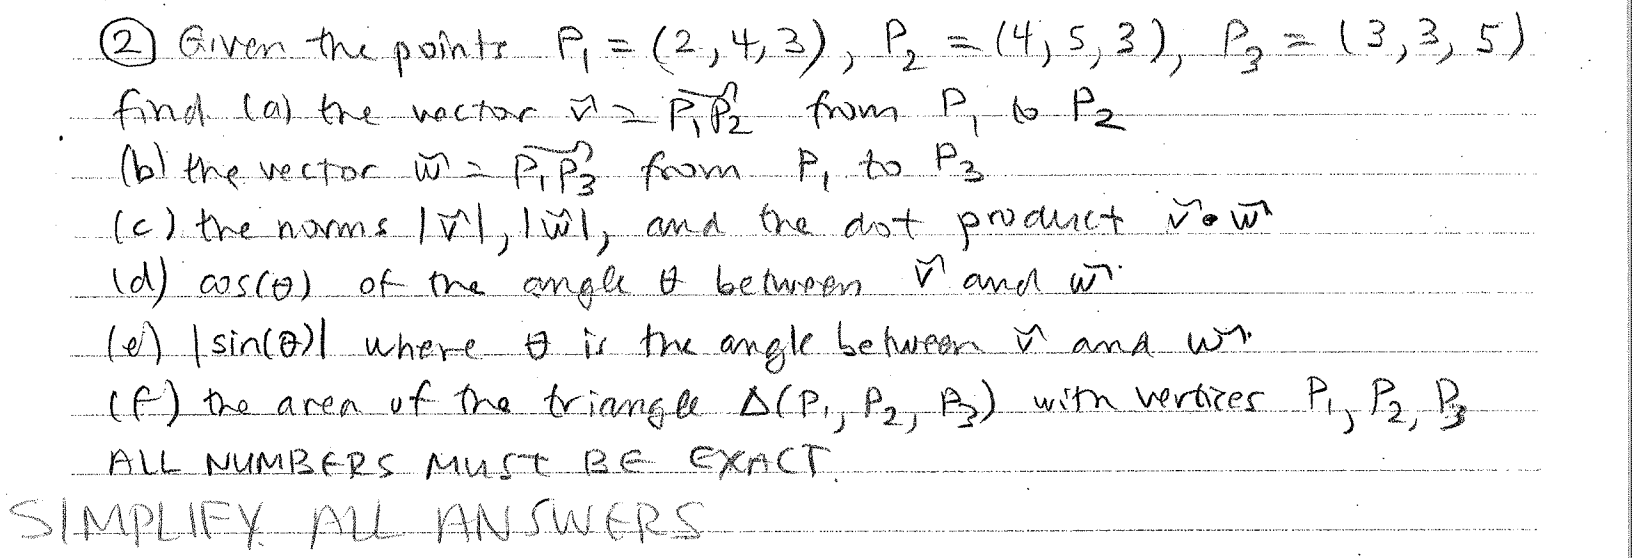 ② Given the points P₁ = (2,4,3), P₂ = (4,5,3), P₃ = (3,3,5)
find (a) the vector v⃗ = P₁P₂⃗ from P₁ to P₂
(b) the vector w⃗ = P₁P₃⃗ from P₁ to P₃
(c) the norms |v⃗|, |w⃗|, and the dot product v⃗•w⃗
(d) cos(θ) of the angle θ between v⃗ and w⃗.
(e) |sin(θ)| where θ is the angle between v⃗ and w⃗.
(f) the area of the triangle Δ(P₁, P₂, P₃) with vertices P₁, P₂, P₃
ALL NUMBERS MUST BE EXACT.
SIMPLIFY ALL ANSWERS